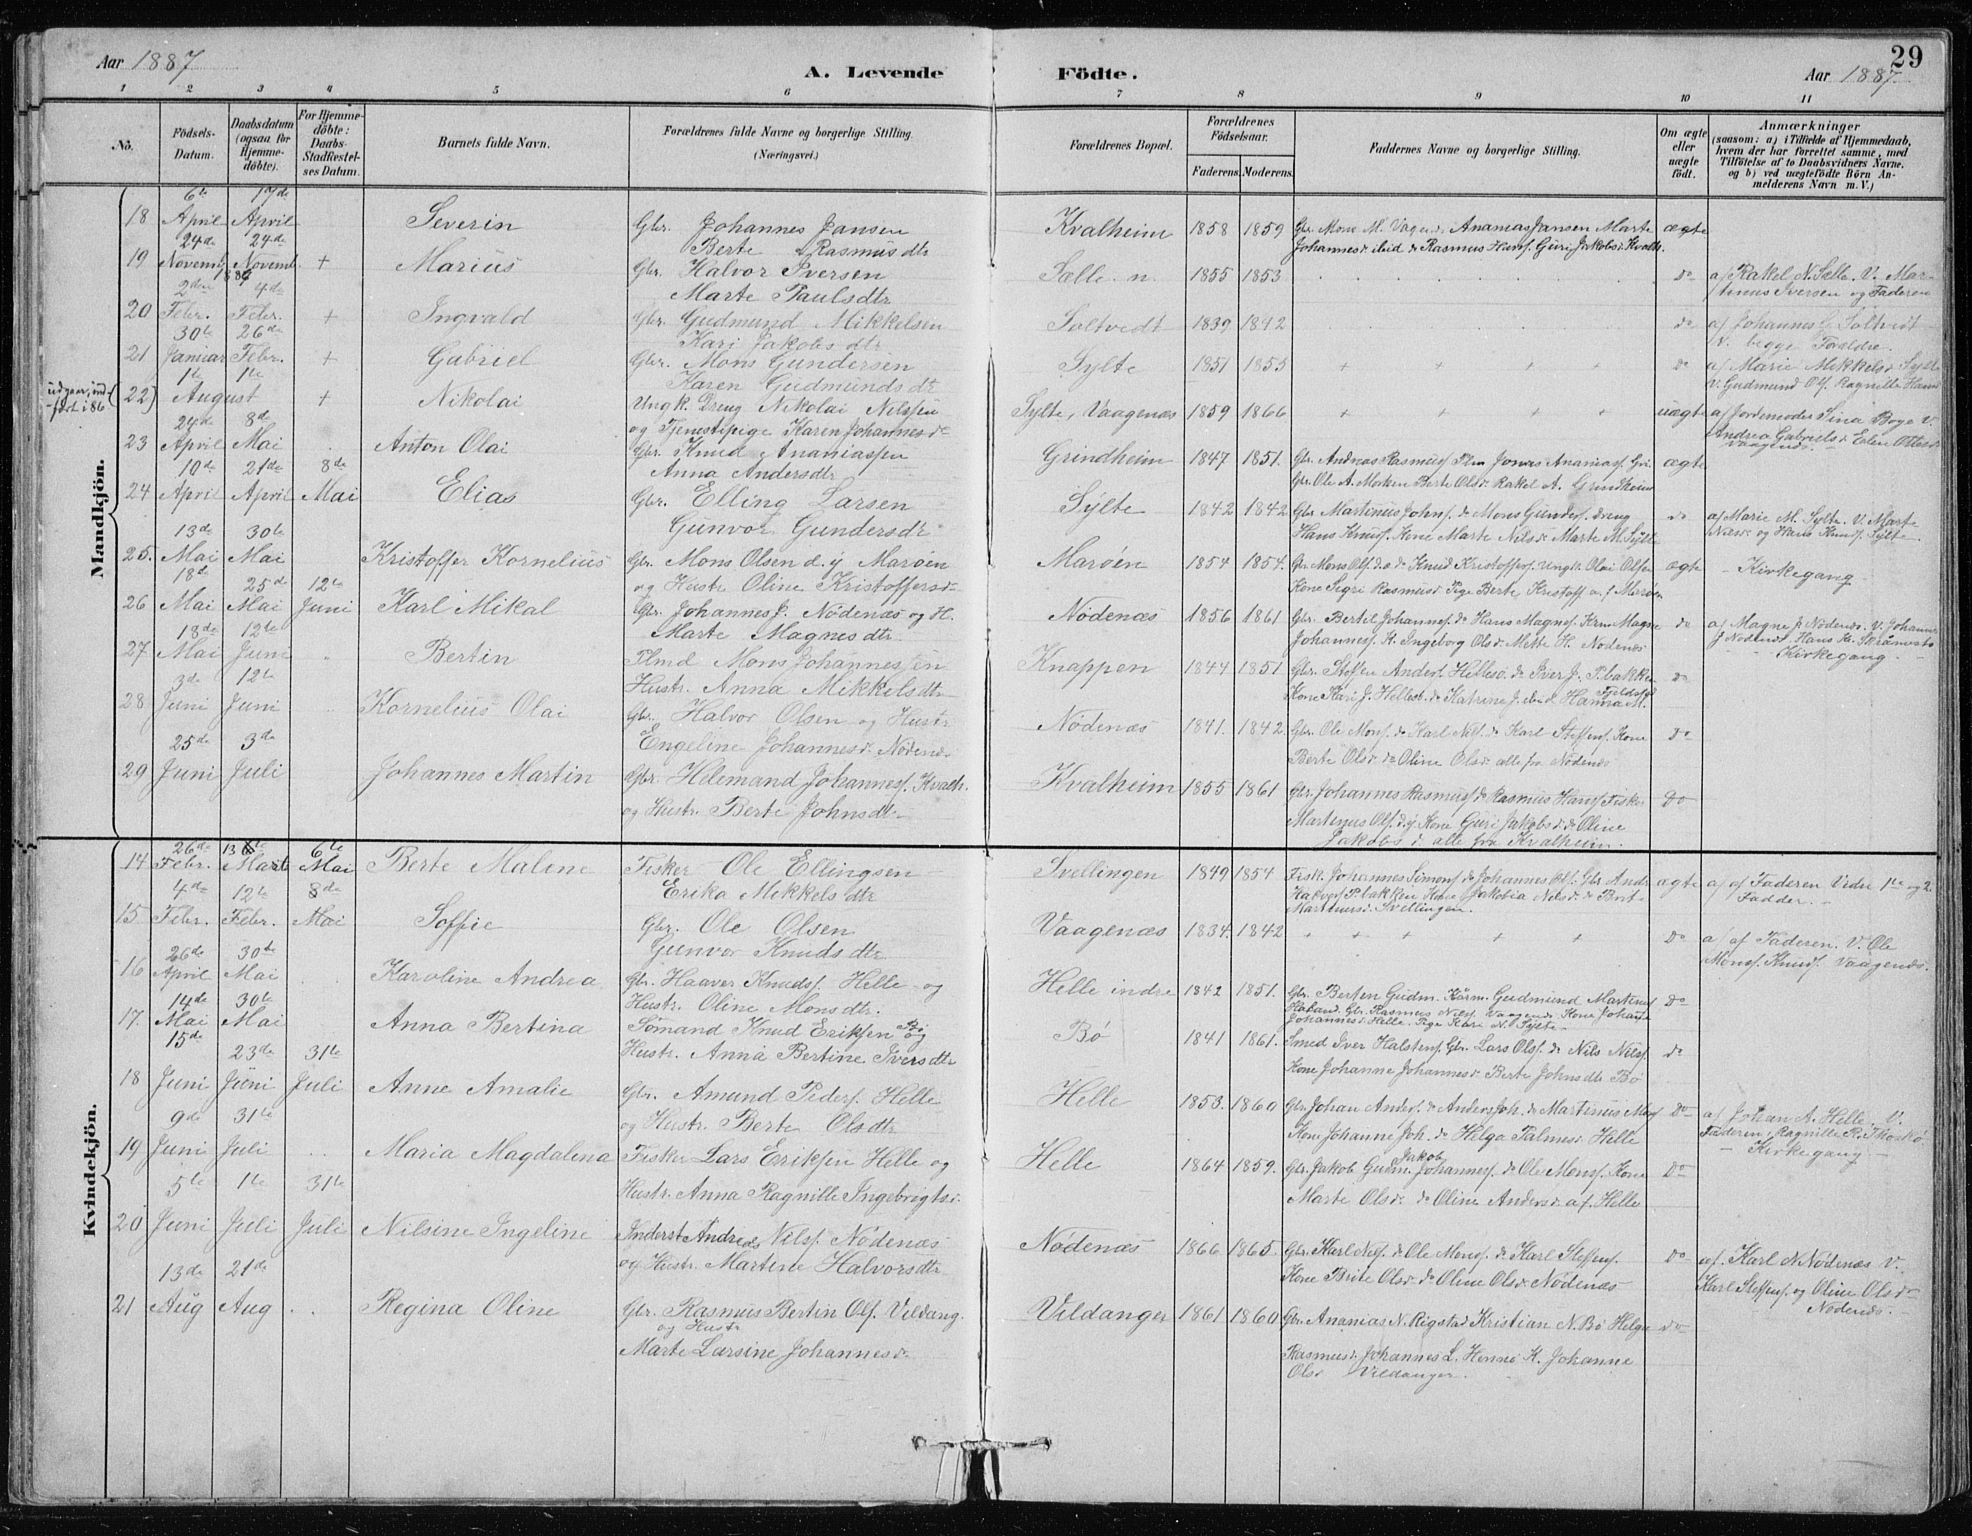 29
Aar 1887
A. Levende Födte.
Aar 1887.
1 2 3 4 5 6 7 8 9 10 11
No.
Födsels-Datum.
Daabsdatum (ogsaa for Hjemmedöbte).
For Hjemmedöbte: Daabs-Stadfæstelses Datum.
Barnets fulde Navn.
Forældrenes fulde Navne og borgerlige Stilling. (Næringsvei.)
Forældrenes Bopæl.
Forældrenes Födselsaar.
Faderens. Moderens.
Faddernes Navne og borgerlige Stilling.
Om ægte eller uægte födt.
Anmærkninger (saasom: a) i Tilfælde af Hjemmedaab, hvem der har forrettet samme, med Tilföielse af to Daabsvidners Navne, og b) ved uægtefödte Börn Anmelderens Navn m. V.)
Mandkjön.
18 6te April 17de April Severin Gbr. Johannes Jansen
Berte Rasmusdtr Kvalheim 1858 1859 Gbr. Mons M. Anamias Jansen Marte ægte
19 24de Novemb. 1886 24de Novemb. + Marius Gbr. Halvor Iversen
Marte Paulsdtr Sælle n. 1855 1853 do a/ Rakel N. Sælle. V. Mar-
tinus Iversen og Faderen
20 2den Febr. 4de Febr. + Ingvald Gbr. Gudmund Mikkelsen
Kari Jakobsdtr Soltvedt 1839 1842 do a/ Johannes Soltvedt
V. begge Forældre.
21 30te Januar 26de Febr. + Gabriel Gbr. Mons Gundersen
Karen Gudmundsdtr Sylte 1851 1853 + + + + do a/ Marie Mikkelsd. Sylte
V. Gudmund Ols. Ragnille Hans
udgaar, indført i 86
22) 1te August 1te + Nikolai Ungk. Dreng Nikolai Nilssen
og Tjenestepige Karen Johannesd. Sylte, Vaagenæs 1859 1866 + + + + uægte a/ Jordemoder Sina Boge V.
Andrea Gabrielsd.
23 24de April 8de Mai Anton Olai Gbr. Knud Ananiassen
Anna Andersdtr Grindheim 1847 1851. Gbr. Andreas Rasmuss. Jonas Ananias. ægte
Gbr. Ole A. Berte Olsd. Rakel A. Grindheim
24 10de April 21de April 8de Mai Elias Gbr. Elling Larsen
Gunvor Gundersdtr Sylte 1842 1842 Gbr. Martinus Johns. do Mons Gunders. dreng do a/ Marie M. Sylte. V. Marte
Hans Knuds. Kone Marte Nilsd. Marte M. Sylte
og Hans Knuds. Sylte.
25. 13de Mai 30te Mai Kristoffer Kornelius Gbr. Mons Olsen d. y Marøen
og Hustr. Oline Kristoffersd. Marøen 1854 1854. Gbr. Mons Ols. do Knud Kristoffers. Ungk. Olai Olsen ægte - Kirkegang -
Kone Segri Rasmusd. Pige Berte
26 18de Mai 25de Mai 12te Juni Karl Mikal Gbr. Johannes J. Nødenæs og H.
Marte Magnesdtr Nødenæs 1856 1861 Gbr. Bertil Johanness. do Hans Magnes. Magne do a/ Magne J. Nødenæs. V. Johannes
Johannes. K. Ingeborg Olsd. Mette H. Nødenæs
J. Nødenæs. Hans
- Kirkegang -
27 18de Mai 12te Juni Bertin Flmd Mons Johannessen
Hustr. Anna Mikkelsdtr Knappen 1844 1851 Gbr. Steffen Anders. Hellesø. do Iver J. do
Kone Kari J. Hellesø. do Katrine J. do Hanna M.
28 3de Juni 12te Juni Kornelius Olai Gbr. Halvor Olsen og Hustr
Engeline Johannesd. Nødenæs Nødenæs 1841. 1842. Gbr. Ole Mons. do Karl Nils. do Karl Steffens. Kone do
Berte Olsd. do Oline Olsd. alle fra Nødenæs
29 25de Juni 3de Juli Johannes Martin Gbr Helemand Johannes. Kvalh.
og Hustr. Berte Johnsdtr Kvalheim 1855 1861 Gbr. Johannes Rasmuss. do Rasmus Hans. Fisker do
Martinus Ols. d. y. Kone Guri Jakobsd. do Oline
Jakobsd. alle fra Kvalheim.
Kvindekjön.
14 26de Febr. 13de Marts 6te Mai Berte Malene Fisker Ole Ellingsen
Erika Mikkelsdtr Svellingen 1849 1854 Fisk. Johannes Simons. do Johannes Ols. Gbr. ægte a/ af Faderen Vidn 1te og 2.
Fadder. -
Kone Jakobia Nilsd. do Berte
Martinusd. Svellingen.
15 4de Febr. 12te Febr. 8de Mai Soffie Gbr. Ole Olsen
Gunvor Knudsdtr Vaagenæs 1834. 1842 + + + + + do a/ af Faderen. V. Ole
Mons. Knuds. Vaagenæs.
16 26de April 30te Mai Karoline Andrea Gbr. Haaver Knuds. Helle og
Hustr. Oline Monsdtr. Helle indre 1842 1851. Gbr. Berten Gudm. Gudmund Martinus do
Gbr. Rasmus Nils. Vaagenæs Kone Johanne
Johannesd. Helle. Pige Kari N. Sylte.
17. 14de Mai 30te Mai Anna Bertina Sømand Knud Eriksen Bø og
Hustr. Anna Bertine Iversdtr Bø 1841 1861. Smed Iver Halstens. Gbr. Lars Ols. do Nils Nils. do
Kone Johanne Johannesd. Berte Johnsdtr Bø
18 15de Juni 23de Juni 31te Juli Anne Amalie Gbr. Amund Peders. Helle
og Hustr. Berte Olsdtr Helle 1853. 1860 Gbr. Johan Anders. do Anders Joh. do Martinus do a/ Johan A. Helle. V.
Kone Johanne Joh. do Helga Salmosd. Helle
Faderen, Ragnille R.
- Kirkegang -
19 9de Juni 31te Juli Maria Magdalena Fisker Lars Eriksen Helle og
Hustr. Anna Ragnille Ingebrigtsd. Helle 1864 1859. Gbr. Jakob Gudm. Jakob Johannes. do Ole Mons. Kone do
Marte Olsd. do Oline Andersd. af Helle
20 5te Juni 1te Juli 31te Juli Nilsine Ingeline Inderst Andreas Nils. Nødenæs
og Hustr. Martine Halvorsdtr Nødenæs 1866 1865. Gbr. Karl Nils. do Ole Mons. do Karl Steffens. do a/ Karl N Nødenæs V.
Kone Brite Olsd. do Oline Olsd. Nødenæs
Karl Steffens. og Oline Olsd.
Nødenæs. -
21 13de Aug 21de Aug Regina Oline Gbr. Rasmus Bertin Ols. Vildang.
og Hustr
Marte Larsine Johannesd. Vildanger 1861 1860 Gbr. Ananias N. Rigstad Kristian N. Bø Helga do
Rasmusd. Johannes L. Hennø K. Johanne
Olsd Vildanger.